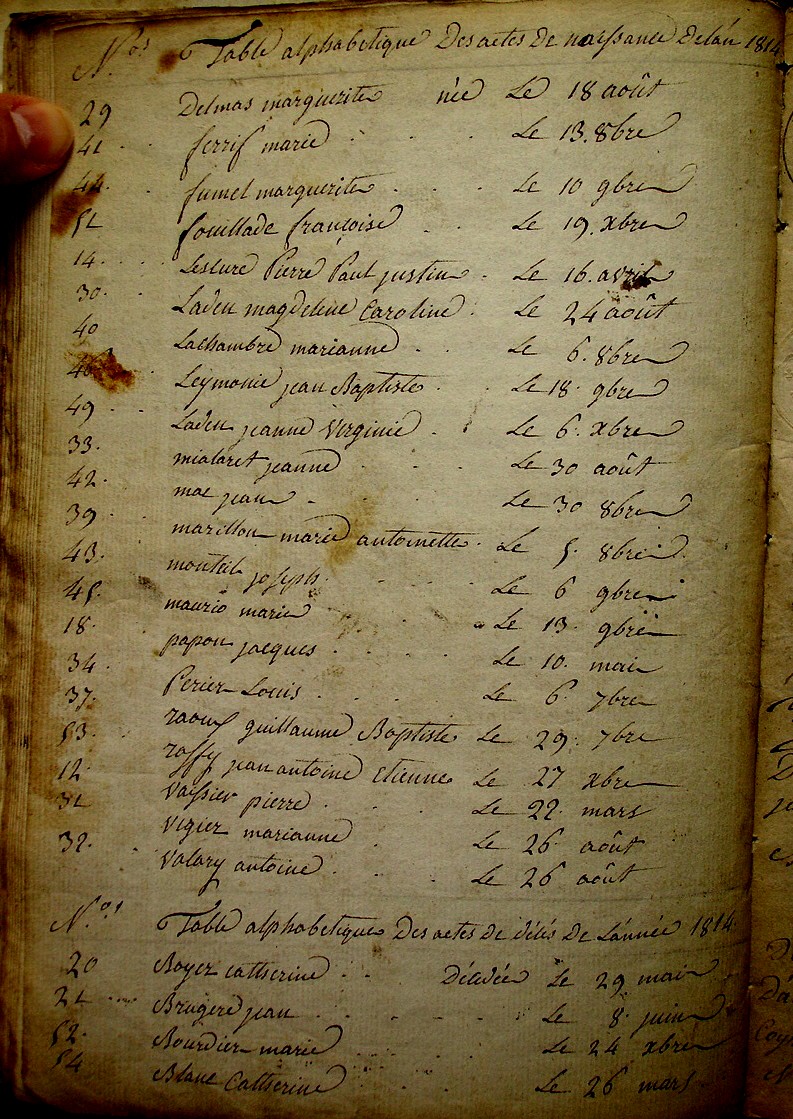 N.os Table alphabetique Des actes De naissance De l'an 1814
29 Delmas marguerite née Le 18 août
41 ferrif marie Le 13. 8bre
44 fumel marguerite Le 10 9bre
51 fouillade françoise Le 19. xbre
14 Lesture Pierre Paul justin Le 16. avril
30 Laden magdeleine Caroline Le 24 août
40 Lachambre marianne Le 6. 8bre
46 Leymonie jean Baptiste Le 18 9bre
49 Laden jeanne Virginie Le 6. xbre
33. mialaret jeanne Le 30 août
42. mac jean Le 30 8bre
39 marillou marie antoinette Le 5. 8bre
43. monteil joseph Le 6 9bre
45. maurio marie Le 13. 9bre
18. papon jacques Le 10. mai
34 Perier Louis Le 6. 7bre
37. raouf guillaume Baptiste Le 29. 7bre
53. raffy jean antoine Etienne Le 27 xbre
12. Vayssier pierre Le 22 mars
31 Vigier marianne Le 26 août
32. Valary antoine Le 26 août
N.os Table alphabetique Des actes de de L'année 1814
20 Boyer catherine Décédée Le 29 mai
21 Brugere jean Le 8. juin
52. Bourdier marie Le 24 xbre
54 Blanc Catherine Le 26 mars